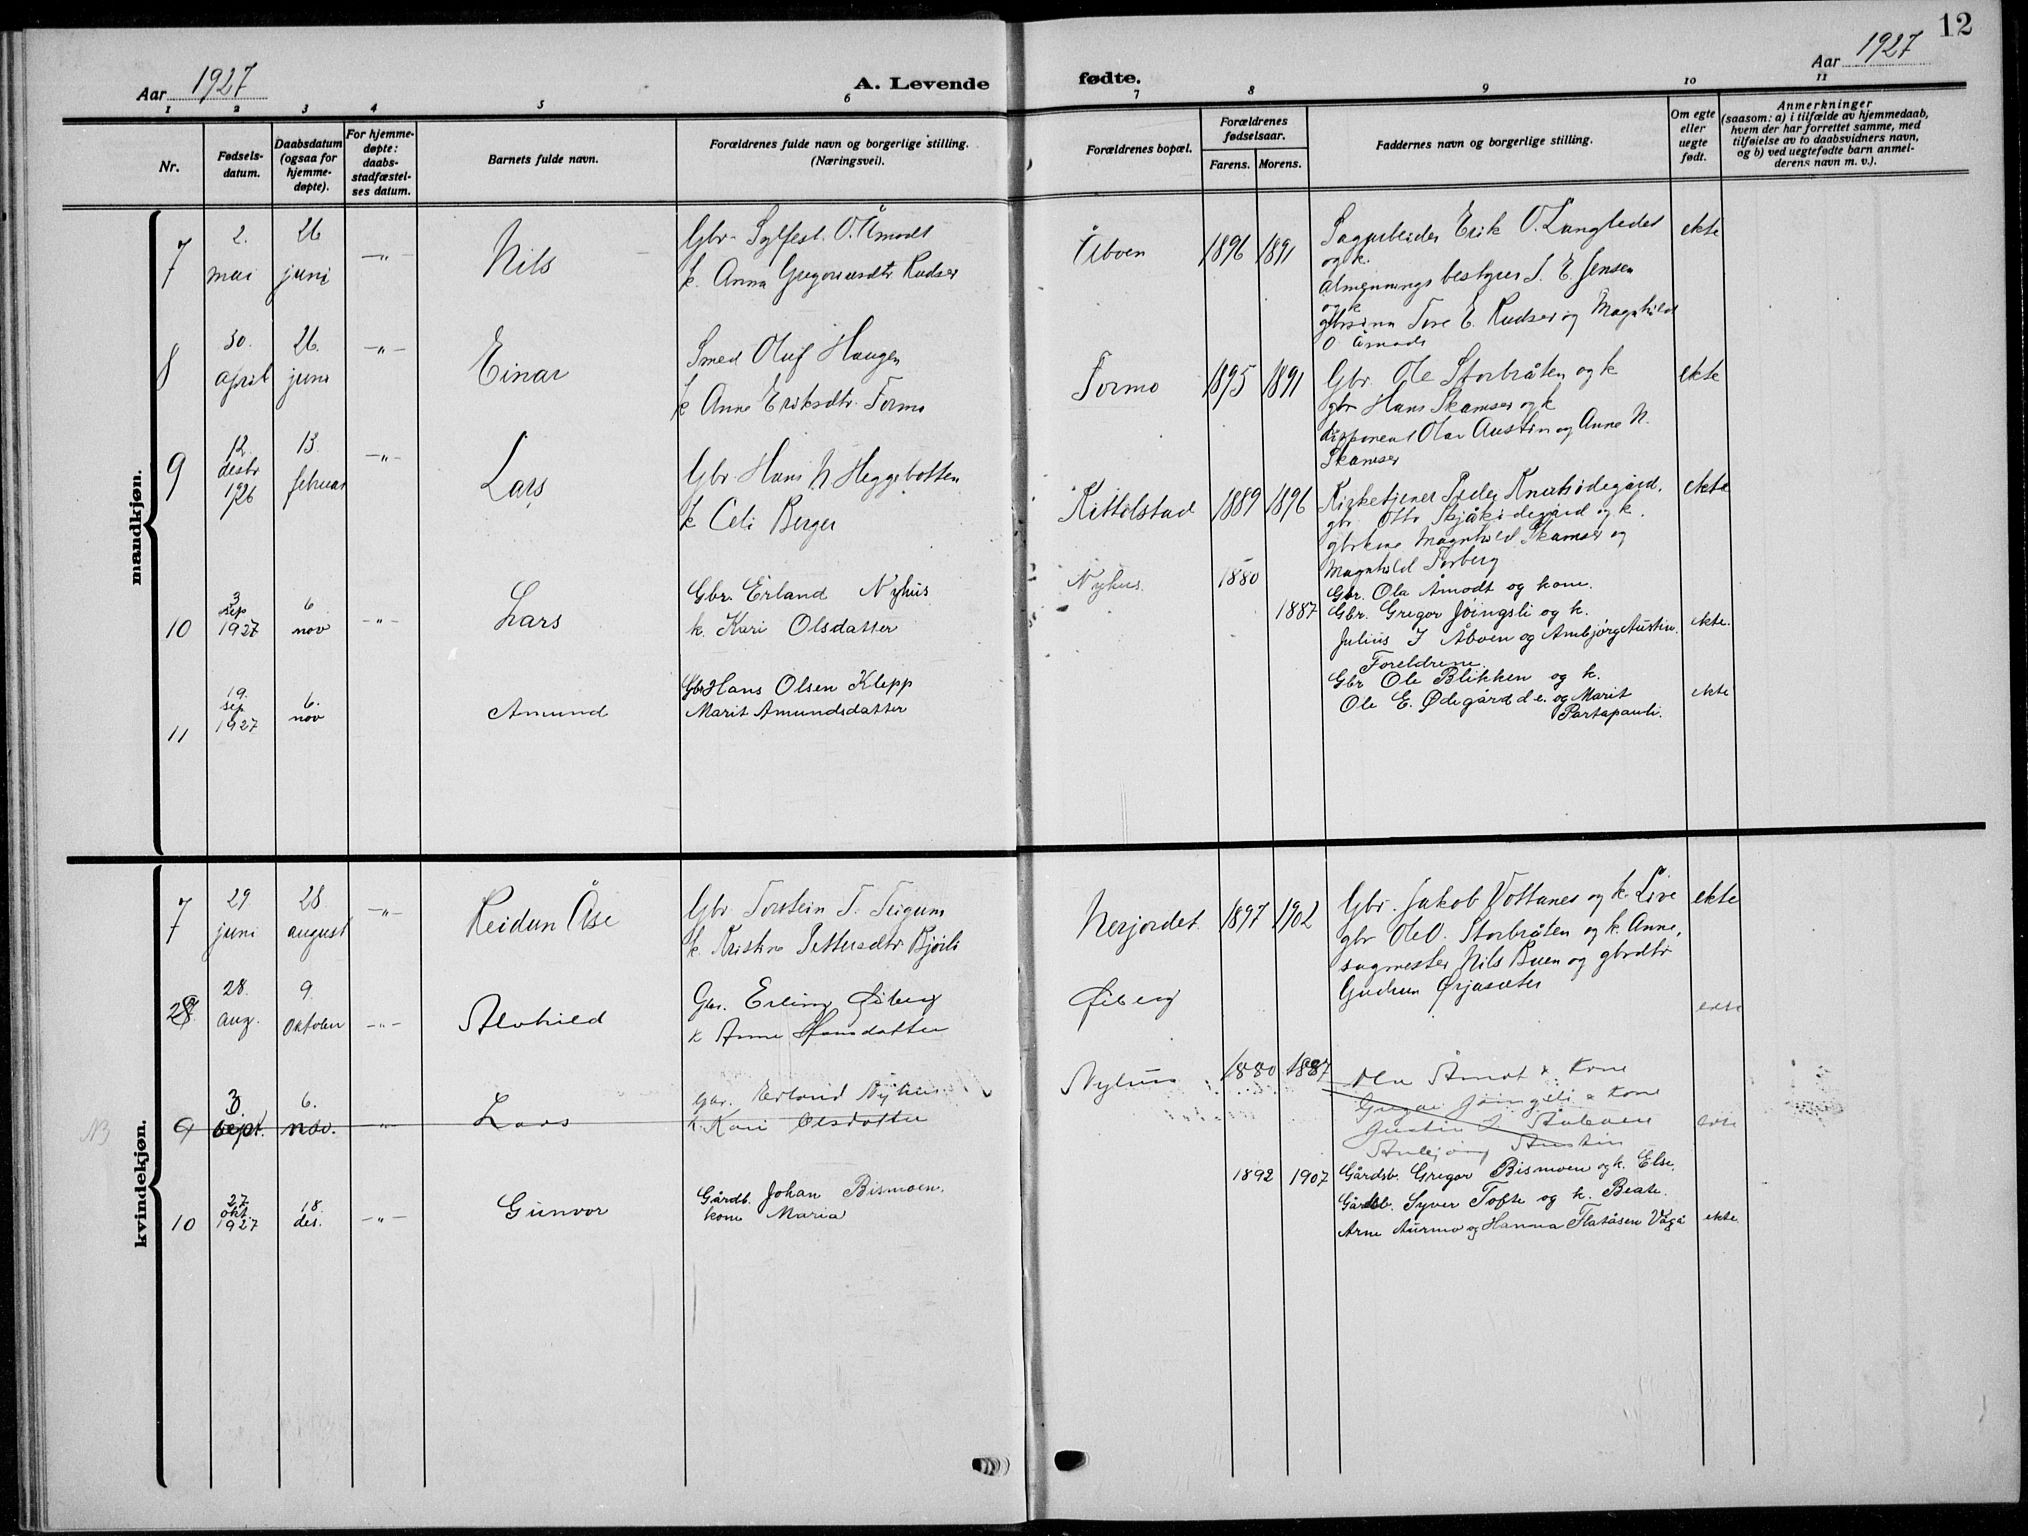 12
Aar 1927
A. Levende fødte.
Aar 1927
1 2 3 4 5 6 7 8 9 10 11
Nr.
Fødsels-
datum.
Daabsdatum
(ogsaa for
hjemme-
døpte).
For hjemme-
døpte:
daabs-
stadfæstel-
ses datum.
Barnets fulde navn.
Forældrenes fulde navn og borgerlige stilling.
(Næringsvei).
Forældrenes bopæl.
Forældrenes
fødselsaar.
Farens. Morens.
Faddernes navn og borgerlige stilling.
Om egte
eller
uegte
født.
Anmerkninger
(saasom: a) i tilfælde av hjemmedaab,
hvem der har forrettet samme, med
tilføielse av to daabsvidners navn,
og b) ved uegtefødte barn anmel-
derens navn m. v.).
mandkjøn.
7
2.
mai
26
juni
-"-
Nils
Gbr. Sylfest O. Åmodt
k. Anna Gregoriusdtr Rudser
Åboen
1896 1891
Sagarbeider Erik O. Langledet
og k.
almenningsbestyrer S. E. Jensen
og k
Tore E. Rudser og Magnhild
O Åmodt
ekte
8
30.
april
26.
juni
-"-
Einar
Smed Oluf Haugen
k Anne Eriksdtr. Formo
Formo
1895 1891
Gbr. Ole Storbråten og k
gbr Hans Skamser og k
disponent Olav Austin og Anne N.
Skamser
ekte
9
12.
desbr
1926
13
februar
-"-
Lars
Gbr Hans N Heggebotten
k Celi Berger
Kittelstad
1889 1896
Kirketjener Peder Knutsødegård,
gbr. Otto Skjåkødegård og k.
Magnhild Skamser og
Magnhild Forberg
ekte
10
3
sep
1927
6
nov
-"-
Lars
Gbr. Erland Nyhus
k. Kari Olsdatter
Nyhus
1880
1887
Gbr. Ola Åmodt og kone.
Gbr. Gregor Jøingsli og k.
Julius I Åboen og Ambjørg Austin.
ekte.
11
19.
sep
1927
6.
nov
Amund
Gbr Hans Olsen Klepp
Marit Amundsdatter
Foreldrene.
Gbr Ole Blikken og k.
Ole E. Ødegård d.e. og Marit
Partapauli.
ekte
kvindekjøn.
7
29
juni
28.
august
-"-
Reidun Åse
Gbr Torstein T. Teigum
k. Kristine Pettersdtr Bjørli
Nerjordet
1897 1902
Gbr. Jakob Vottanes og k. Live
gbr Ole O. Storbråten og k. Anne,
sagmester Nils Buen og gbrdtr
Gudrun Ørjasæter
ekte
28.
aug.
9.
oktober
-"-
Alvhild
Gbr. Erling Øiberg
k Anne Hansdatter
Øiberg
NB
9
3.
sept.
6.
nov.
-"-
Lars
Gbr. Erland Nyhus
k. Kari Olsdatter
Nyhus
1880 1887
Ola Åmot & kone
Gregor Jøingsli & kone
10
27.
okt.
1927
18.
des.
-"-
Gunvor
Gårdb. Johan Bismoen.
kone Maria
1892 1907
Gårdsb. Gregor Bismoen og k. Else.
Gårdsb. Syver Tofte og k. Beate.
Arne Aurmo og Hanna Flatåsen Vågå
ekte